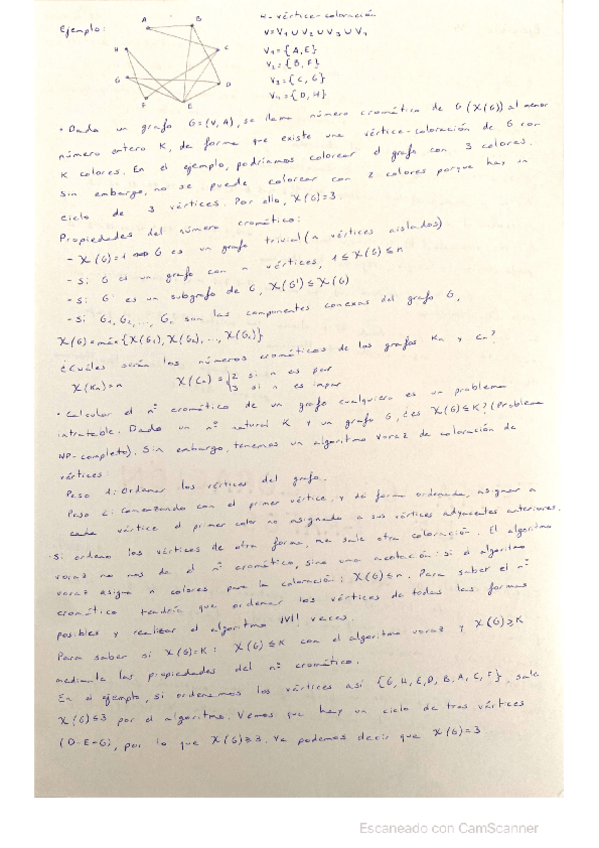 Ejemplo:
A
B
C
D
E
F
G
H
4-vértice-coloración
V=V1 ∪ V2 ∪ V3 ∪ V4
V1={A,E}
V2={B,F}
V3={C,G}
V4={D,H}
· Dada un grafo G=(V,A), se llama número cromático de G (X(G)) al menor
número entero K, de forma que existe una vértice-coloración de G con
K colores. En el ejemplo, podríamos colorear el grafo con 3 colores.
Sin embargo, no se puede colorear con 2 colores porque hay un
ciclo de 3 vértices. Por ello, X(G)=3
Propiedades del número cromático:
- X(G)=1 G es un grafo trivial (n vértices aislados).
- Si G es un grafo con n vértices, 1 ≤ X(G) ≤ n
- Si G' es un subgrafo de G, X(G') ≤ X(G)
- Si G1, G2, ..., son las componentes conexas del grafo G,
X(G)=máx{X(G1), X(G2), ..., }
¿Cuáles serán los números cromáticos de los grafos Kn y Cn?
X(Kn)=n X(Cn)={2 si n es par
3 si n es impar
· Calcular el nº cromático de un grafo cualquiera es un problema
intratable. Dado un nº natural K y un grafo G, ¿es X(G)≤K? (Problema
NP-completo). Sin embargo, tenemos un algoritmo voraz de coloración de
vértices.
Paso 1: Ordenar los vértices del grafo.
Paso 2: Comenzando con el primer vértice, y de forma ordenada, asignar a
cada vértice el primer color no asignado a sus vértices adyacentes anteriores.
Si ordeno los vértices de otra forma, me sale otra coloración. El algoritmo
voraz no nos da el nº cromático, sino una acotación: si el algoritmo
voraz asigna n colores para la coloración: X(G)≤n. Para saber el nº
cromático tendría que ordenar los vértices de todas las formas
posibles y realizar el algoritmo |V|! veces.
Para saber si X(G)=K: X(G)≤K con el algoritmo voraz y X(G)≥K
mediante las propiedades del nº cromático.
En el ejemplo, si ordenamos los vértices así {G,H,E,D,B,A,C,F}, sale
X(G)≤3 por el algoritmo. Vemos que hay un ciclo de tres vértices
(D-E-G), por lo que X(G)≥3. Ya podemos decir que X(G)=3
Escaneado con CamScanner